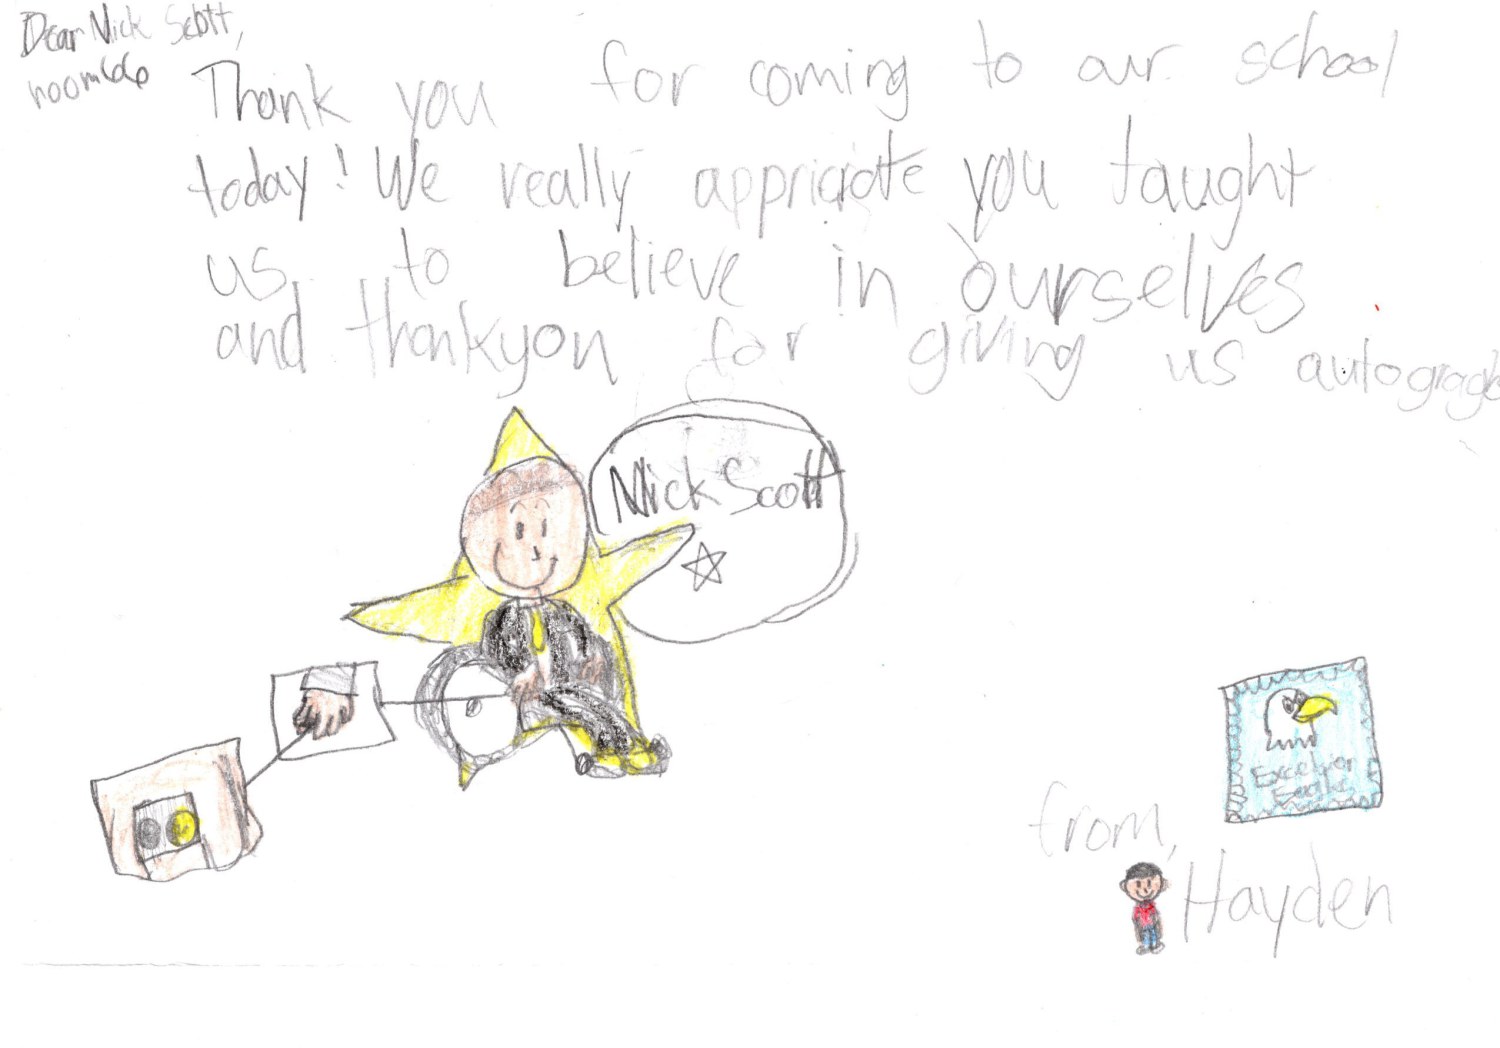 Dear Nick Scott,
room 66
Thank you for coming to our school
today! We really appriciate you taught
us to believe in ourselves
and thankyou for giving us
Nick Scott
Excelsior
Eagles
from,
Hayden